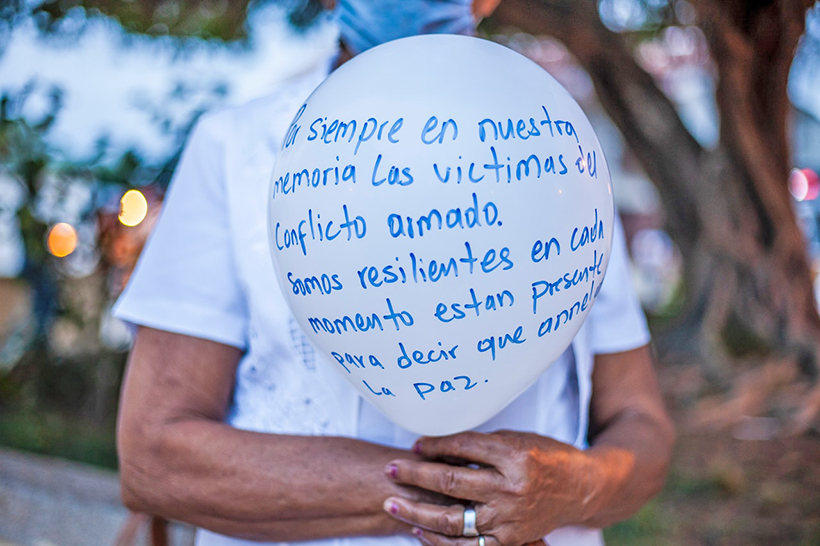 Por siempre en nuestra
memoria Las victimas del
Conflicto armado.
somos resilientes en cada
momento estan presente
para decir que annelo
La paz.